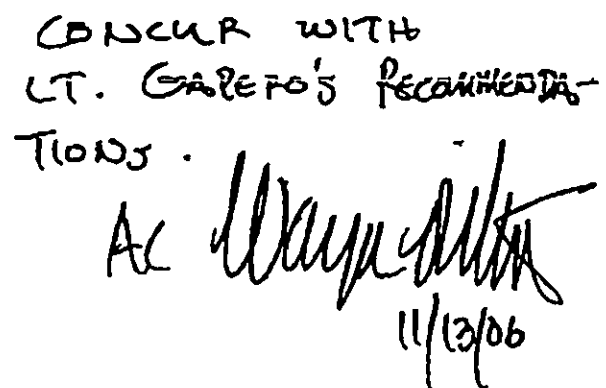 CONCUR WITH
LT. GARERO'S RECOMMENDA-
TIONS.
AC Wayne
11/13/06